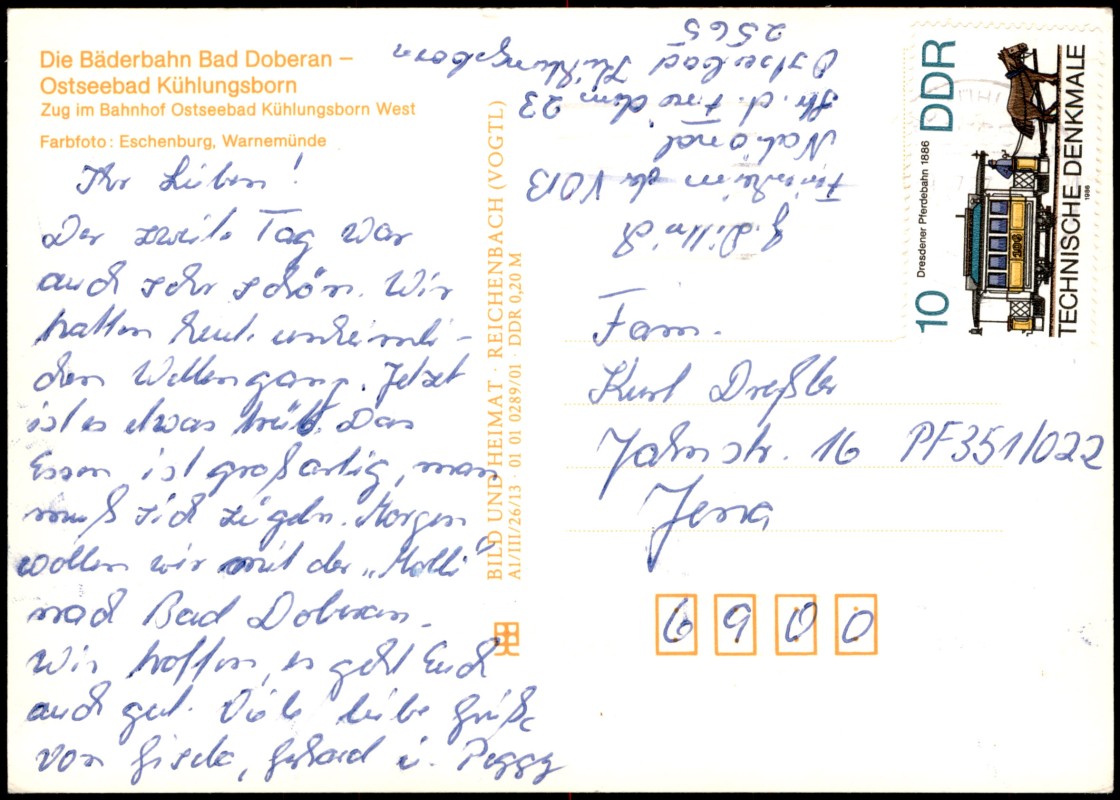 Die Bäderbahn Bad Doberan –
Ostseebad Kühlungsborn
Zug im Bahnhof Ostseebad Kühlungsborn West
Farbfoto: Eschenburg, Warnemünde
Ihr Lieben!
Der zweite Tag war
auch sehr schön. Wir
hatten heute unheimli-
chen Wellengang. Jetzt
ist es etwas trüb. Das
Essen ist großartig, man
muß sich zügeln. Morgen
wollen wir mit der „Molli"
nach Bad Doberan.
Wir hoffen, es geht Euch
auch gut. Viele liebe Grüße
von Gisela, Gerhard u. Peggy
BILD UND HEIMAT · REICHENBACH (VOGTL)
A1/III/26/13 · 01 01 0289/01 · DDR 0,20 M
G. Dittrich
Ferienheim der VOB
National
Str. d. Freundsch. 23
Ostseebad Kühlungsborn
2565
10 DDR
Dresdener Pferdebahn 1886
TECHNISCHE DENKMALE
1986
Fam.
Kurt Dreßler
Jahnstr. 16 PF 351/022
Jena
6900